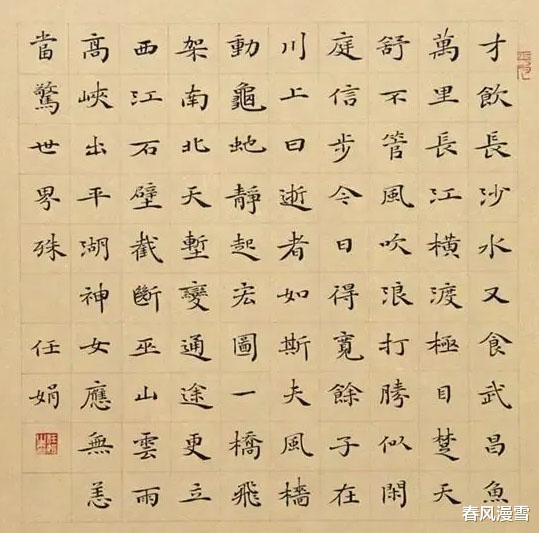 才飲長沙水又食武昌魚
萬里長江橫渡極目楚天
舒不管風吹浪打勝似閑
庭信步今日得寬餘子在
川上曰逝者如斯夫風檣
動龜虵靜起宏圖一橋飛
架南北天塹變通途更立
西江石壁截斷巫山雲雨
高峽出平湖神女應無恙
當驚世界殊 任娟
春风漫雪